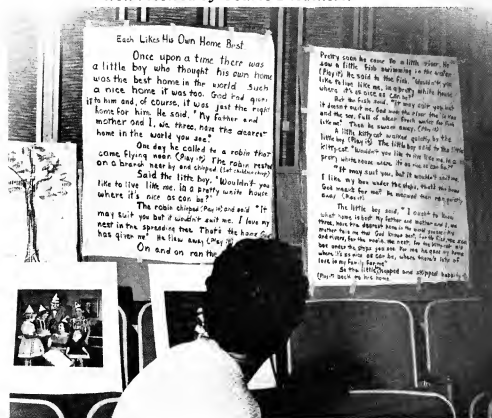 Each Likes His Own Home Best
Once upon a time there was
a little boy who thought his own home
was the best home in the world. Such
a nice home it was too. God had given
it to him and, of course, it was just the right
home for him. He said, "My father and
mother and I, we three, have the dearest
home in the world you see."
One day he called to a robin that
came flying near (Play it) The robin rested
on a branch near by and chirped
Said the little boy, "Wouldn't you
like to live like me, in a pretty white house
where it's nice as can be?"
The robin chirped (Play it) and said "It
may suit you but it wouldn't suit me. I love my
nest in the spreading tree. That's the home God
has given me" He flew away (Play it)
On and on ran the
Pretty soon he came to a little river. He
saw a little fish swimming in the water
(Play it) He said to the fish, "Wouldn't you
like to live like me, in a pretty white house
where it's as nice as can be?"
But the fish said, "It may suit you but
it doesn't suit me. God made the river
and the sea, full of clean fresh water for
like me." Then he swam away. (Play it)
A little kitty-cat walked quietly to the
little boy (Play it) The little boy said to the little
kitty-cat, "Wouldn't you like to live like me, in a
pretty white house where it's as nice as can be?"
"It may suit you, but it wouldn't suit me.
I like my box under the steps, that's the home
God meant for me" He meowed then ran quietly
away (Play it)
The little boy said, "I ought to know
what home is best. My father and mother and I, we
three, have the dearest home in the world
where it's as nice as can be, where there's lots of
love in my family for me"
So the little boy hopped and skipped happily
(Play it) back to his home